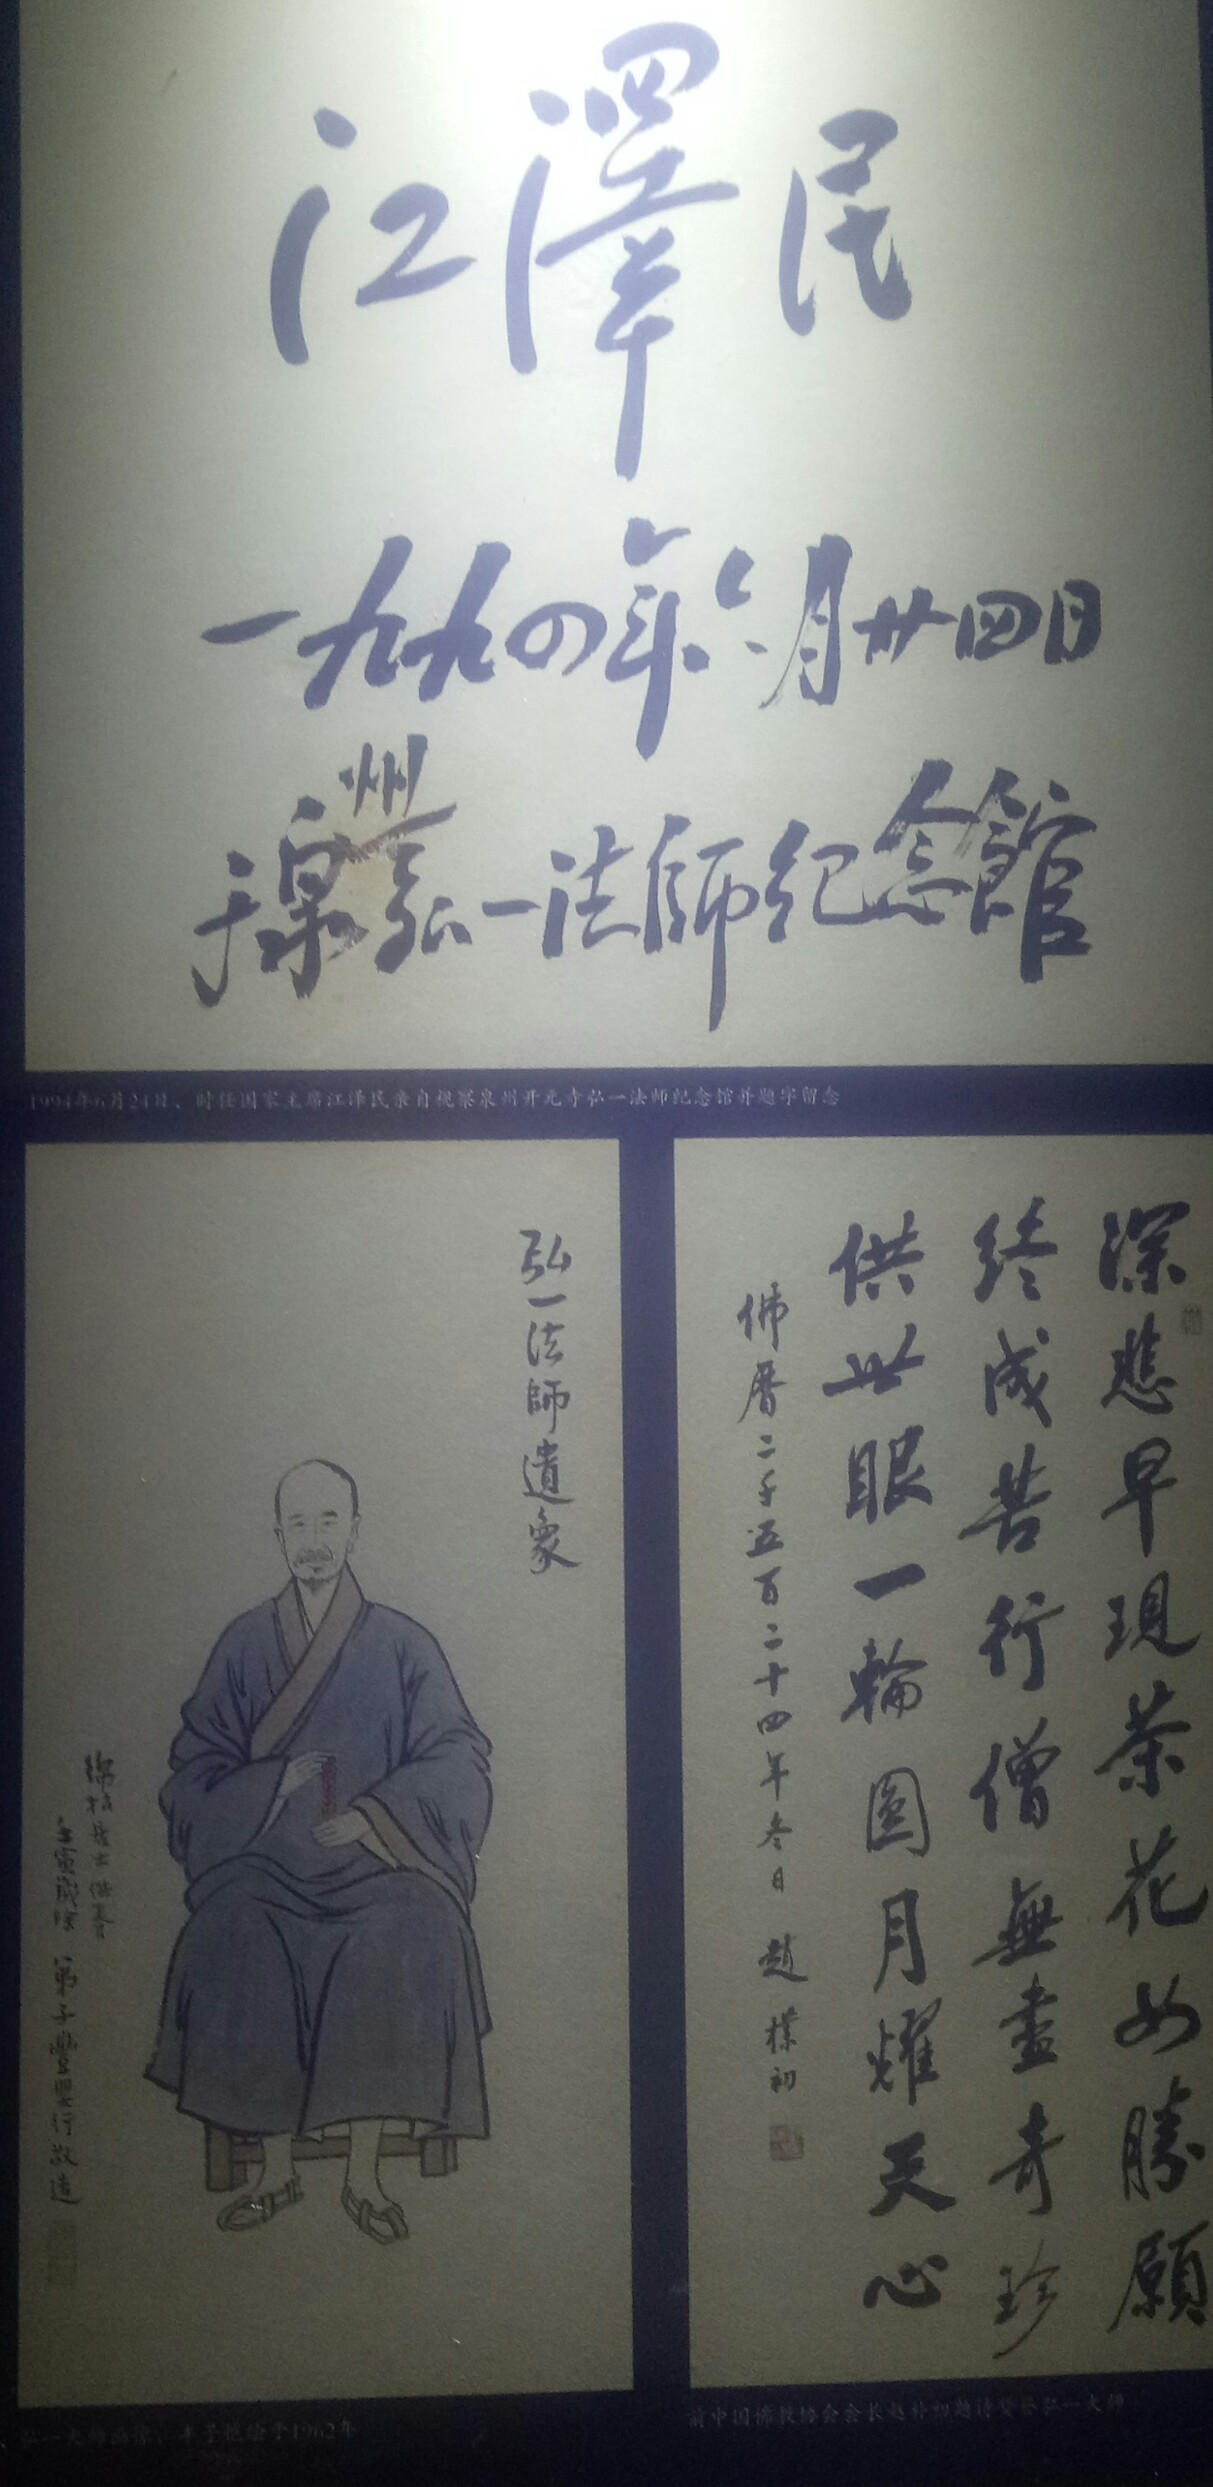 江澤民
一九九四年六月廿四日
于泉州弘一法師紀念館
1994年6月24日、时任国家主席江泽民亲自视察泉州开元寺弘一法师纪念馆并题字留念
弘一法師遺象
緣緣居士供養
壬寅歲除 弟子豐嬰行敬造
弘一大师画像，丰子恺绘于1962年
深悲早現茶花女勝願
終成苦行僧無盡奇珍
供世眼一輪圓月耀天心
佛曆二千五百二十四年冬日 趙樸初
前中国佛教协会会长赵朴初题诗赞弘一大师